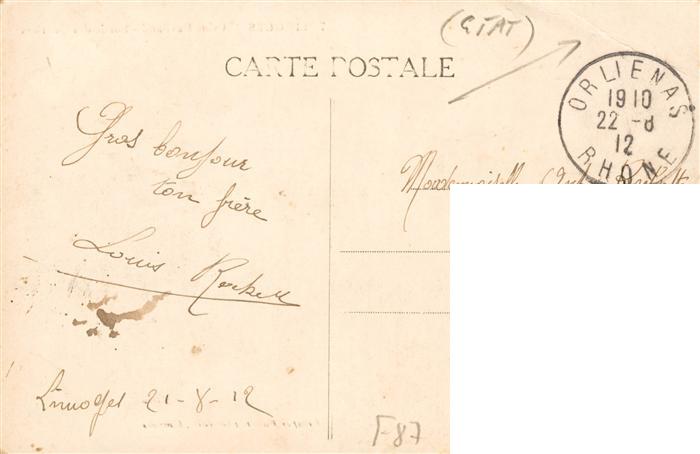 (ETAT)
CARTE POSTALE
ORLIENAS
1910
22 - 8
12
RHONE
Gros bonjour
ton frère
Louis
Mademoiselle
Limoges 21-8-12
F-87